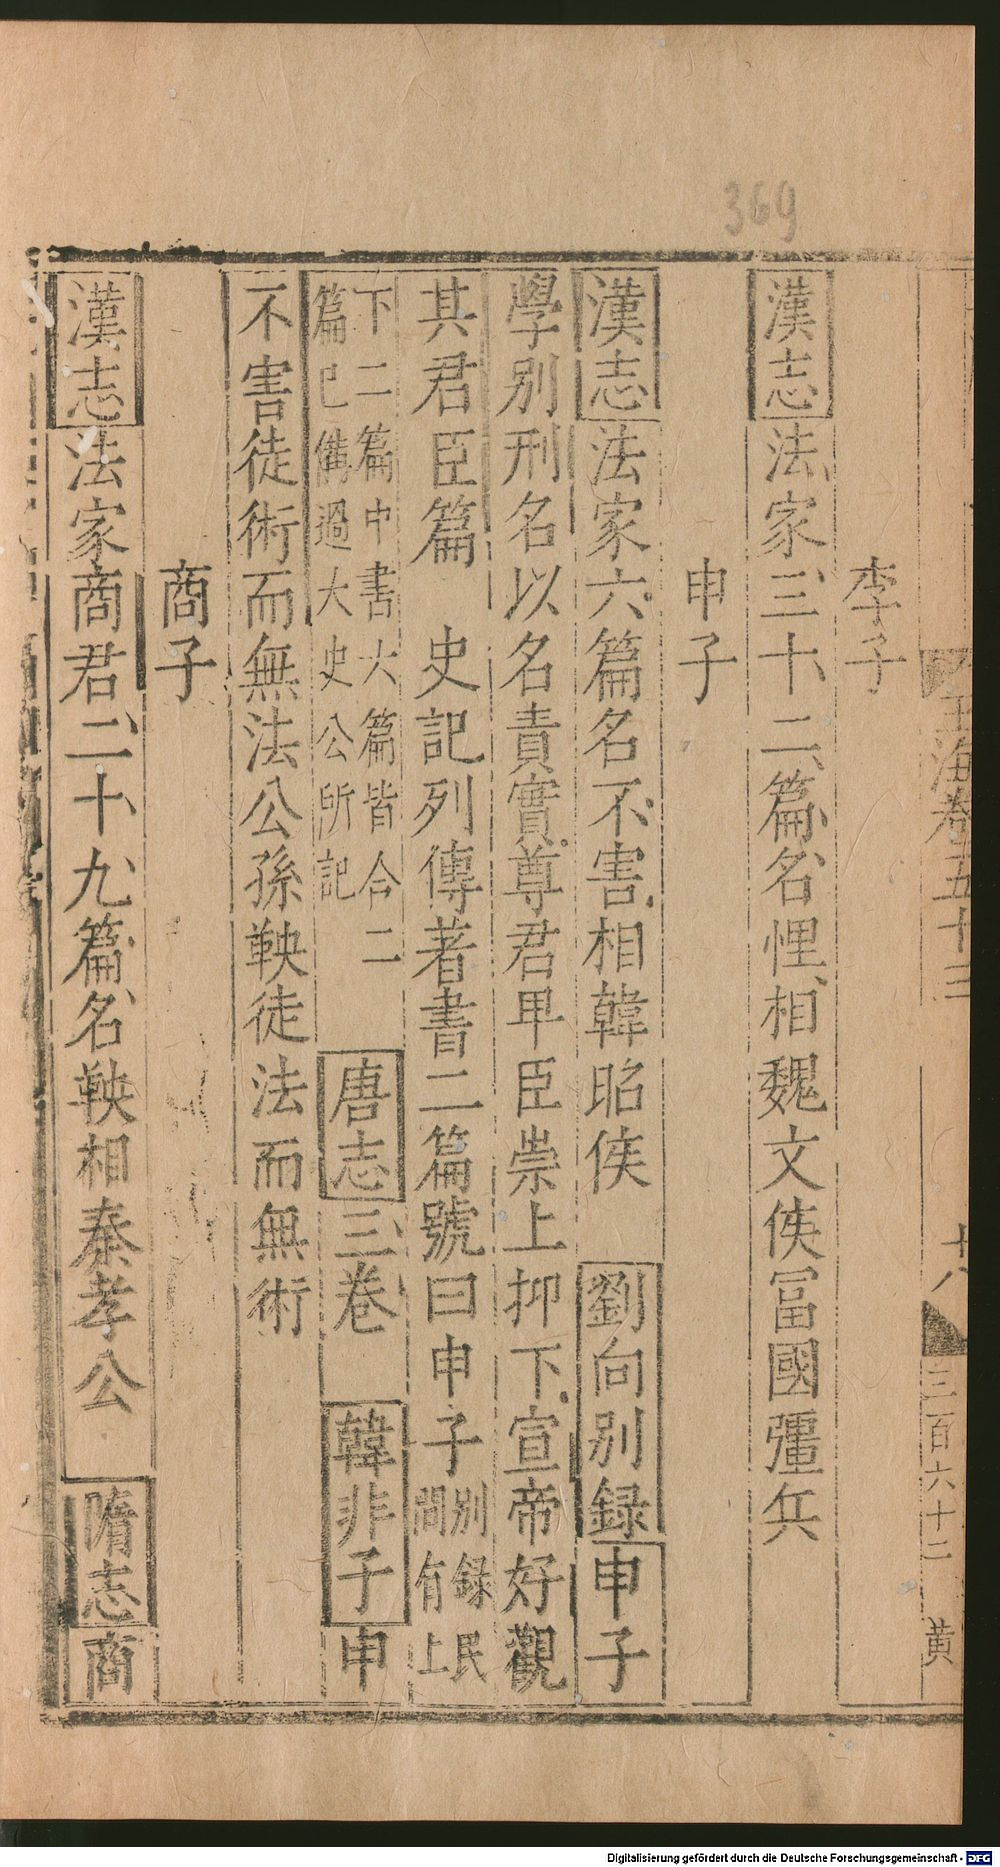 369
玉海卷五十三
十八
三百六十二
黃
李子
漢志法家三十二篇名悝相魏文侯冨國彊兵
申子
漢志法家六篇名不害相韓昭侯 劉向別録申子
學別刑名以名責實尊君卑臣崇上抑下宣帝好觀
其君臣篇 史記列傳著書二篇號曰申子別録民間有上
下二篇中書六篇皆合二篇已備過大史公所記 唐志三卷 韓非子申
不害徒術而無法公孫鞅徒法而無術
商子
漢志法家商君二十九篇名鞅相秦孝公 隋志商
Digitalisierung gefördert durch die Deutsche Forschungsgemeinschaft - DFG